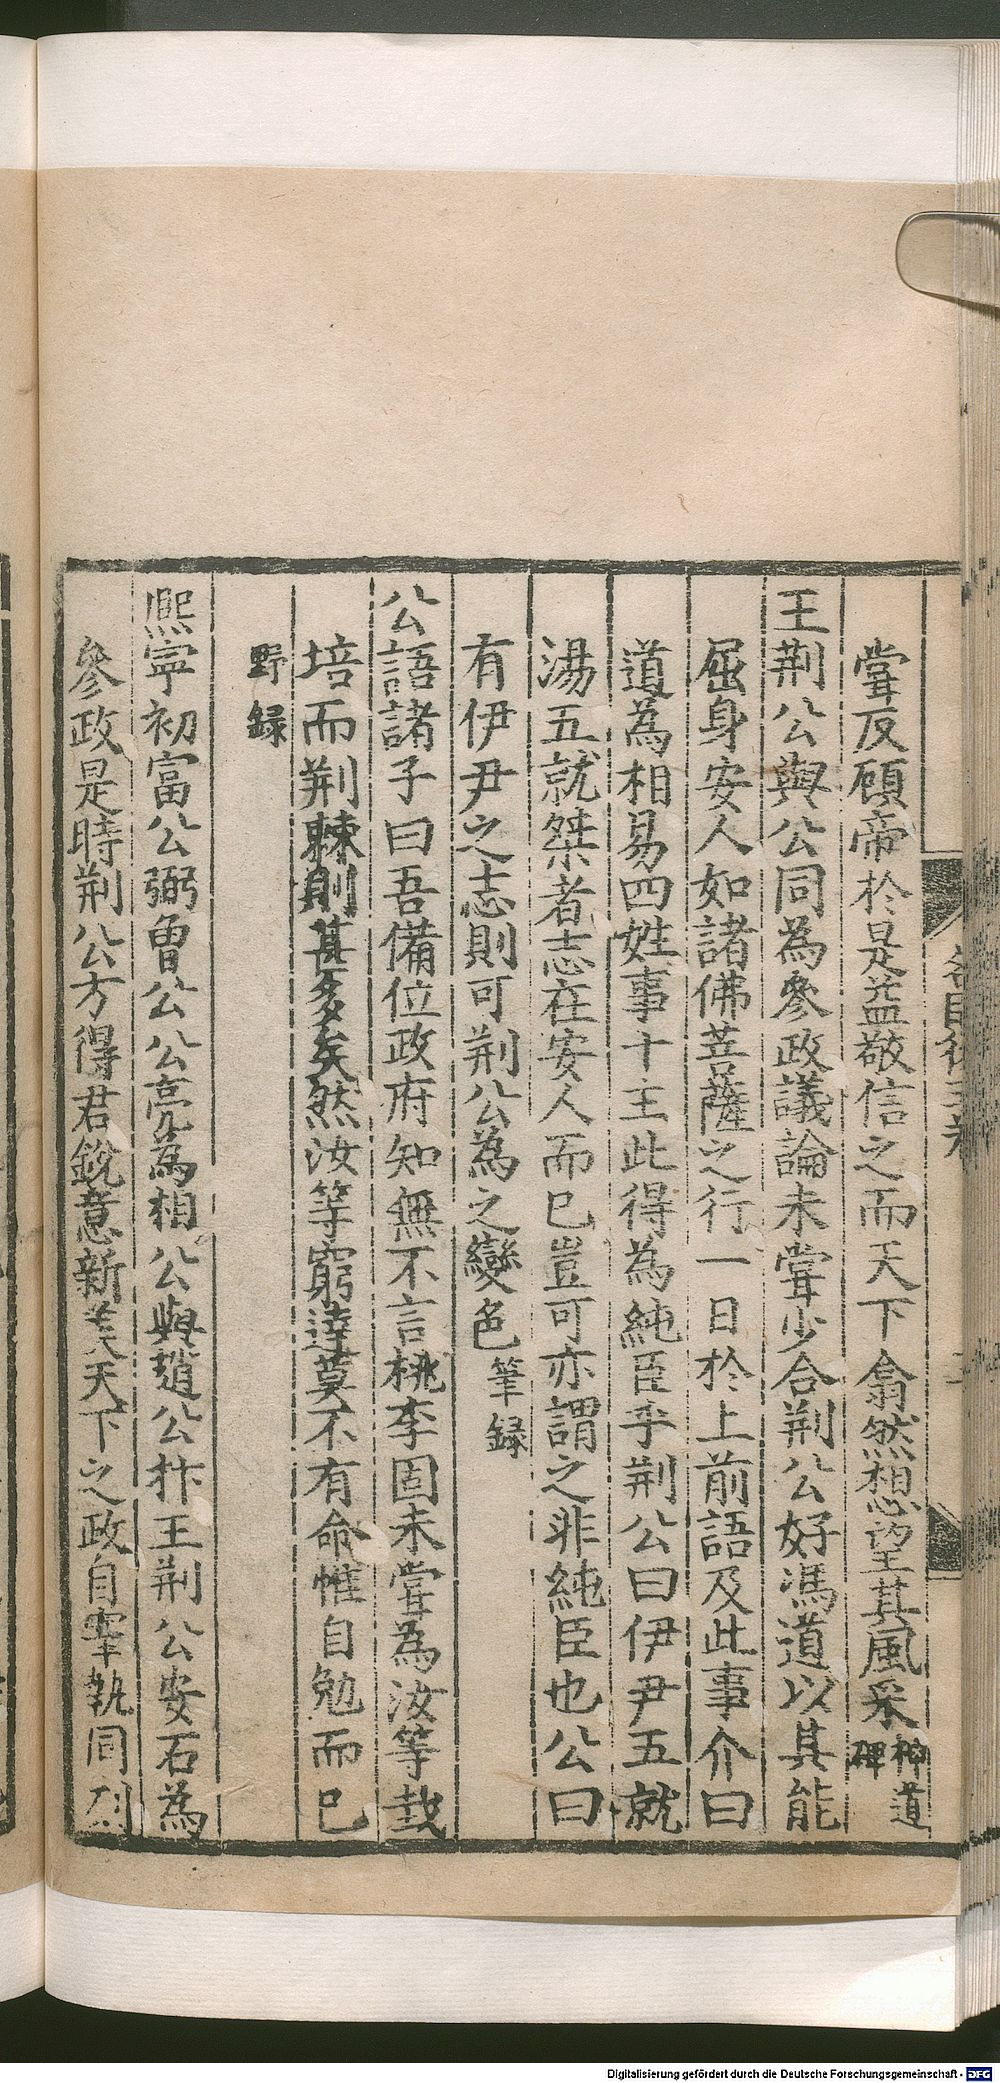 甞反顧帝於是益敬信之而天下翕然想望其風采神道碑
王荆公與公同為參政議論未甞少合荆公好馮道以其能
屈身安人如諸佛菩薩之行一日於上前語及此事介曰
道為相易四姓事十主此得為純臣乎荆公曰伊尹五就
湯五就桀者志在安人而已豈可亦謂之非純臣也公曰
有伊尹之志則可荆公為之變色筆録
公語諸子曰吾備位政府知無不言桃李固未甞為汝等栽
培而荆棘則甚多矣然汝等窮達莫不有命惟自勉而已
野録
熈寧初富公弼曾公公亮為相公與趙公抃王荆公安石為
參政是時荆公方得君銳意新美天下之政自宰執同列
Digitalisierung gefördert durch die Deutsche Forschungsgemeinschaft - DFG